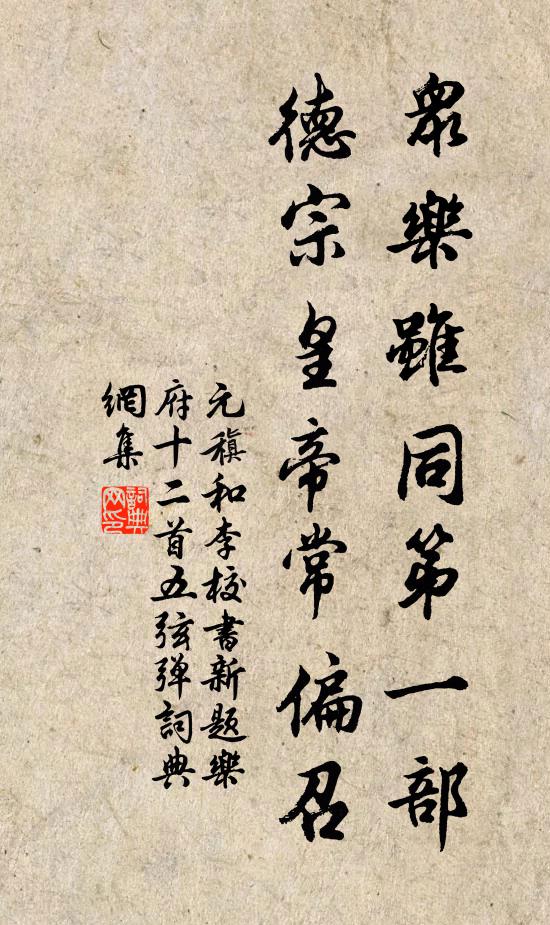 眾樂雖同第一部
德宗皇帝常偏召
元稹和李校書新題樂
府十二首五弦彈詞典
網集
詞典
网印